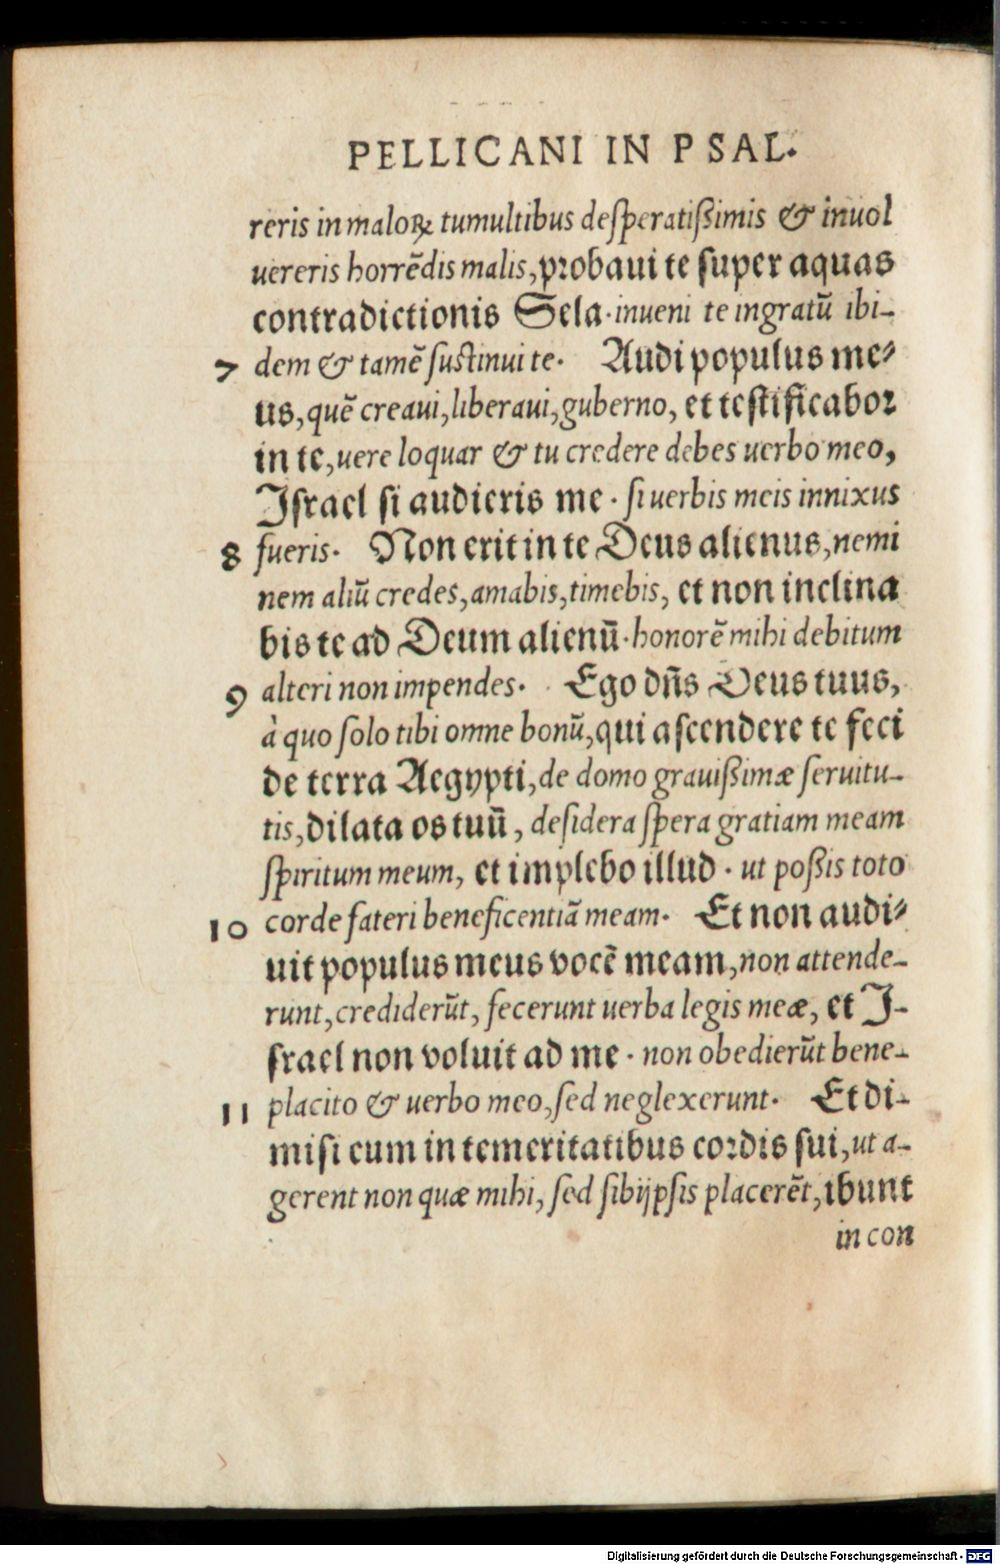 PELLICANI IN PSAL.
reris in maloꝝ tumultibus desperatißimis & inuol
uereris horrẽdis malis, probaui te super aquas
contradictionis Sela. inueni te ingratũ ibi-
7 dem & tamẽ sustinui te. Audi populus me-
us, quẽ creaui, liberaui, guberno, et testificabor
in te, uere loquar & tu credere debes uerbo meo,
Israel si audieris me. si uerbis meis innixus
8 fueris. Non erit in te Deus alienus, nemi
nem aliũ credes, amabis, timebis, et non inclina
bis te ad Deum alienũ. honorẽ mihi debitum
9 alteri non impendes. Ego dñs Deus tuus,
à quo solo tibi omne bonũ, qui ascendere te feci
de terra Aegypti, de domo grauißimæ seruitu-
tis, dilata os tuũ, desidera spera gratiam meam
spiritum meum, et implebo illud. ut poßis toto
10 corde fateri beneficentiã meam. Et non audi-
uit populus meus vocẽ meam, non attende-
runt, crediderũt, fecerunt uerba legis meæ, et I-
srael non voluit ad me. non obedierũt bene-
11 placito & uerbo meo, sed neglexerunt. Et di-
misi eum in temeritatibus cordis sui, ut a-
gerent non quæ mihi, sed sibijpsis placerẽt, ibunt
in con
Digitalisierung gefördert durch die Deutsche Forschungsgemeinschaft - DFG